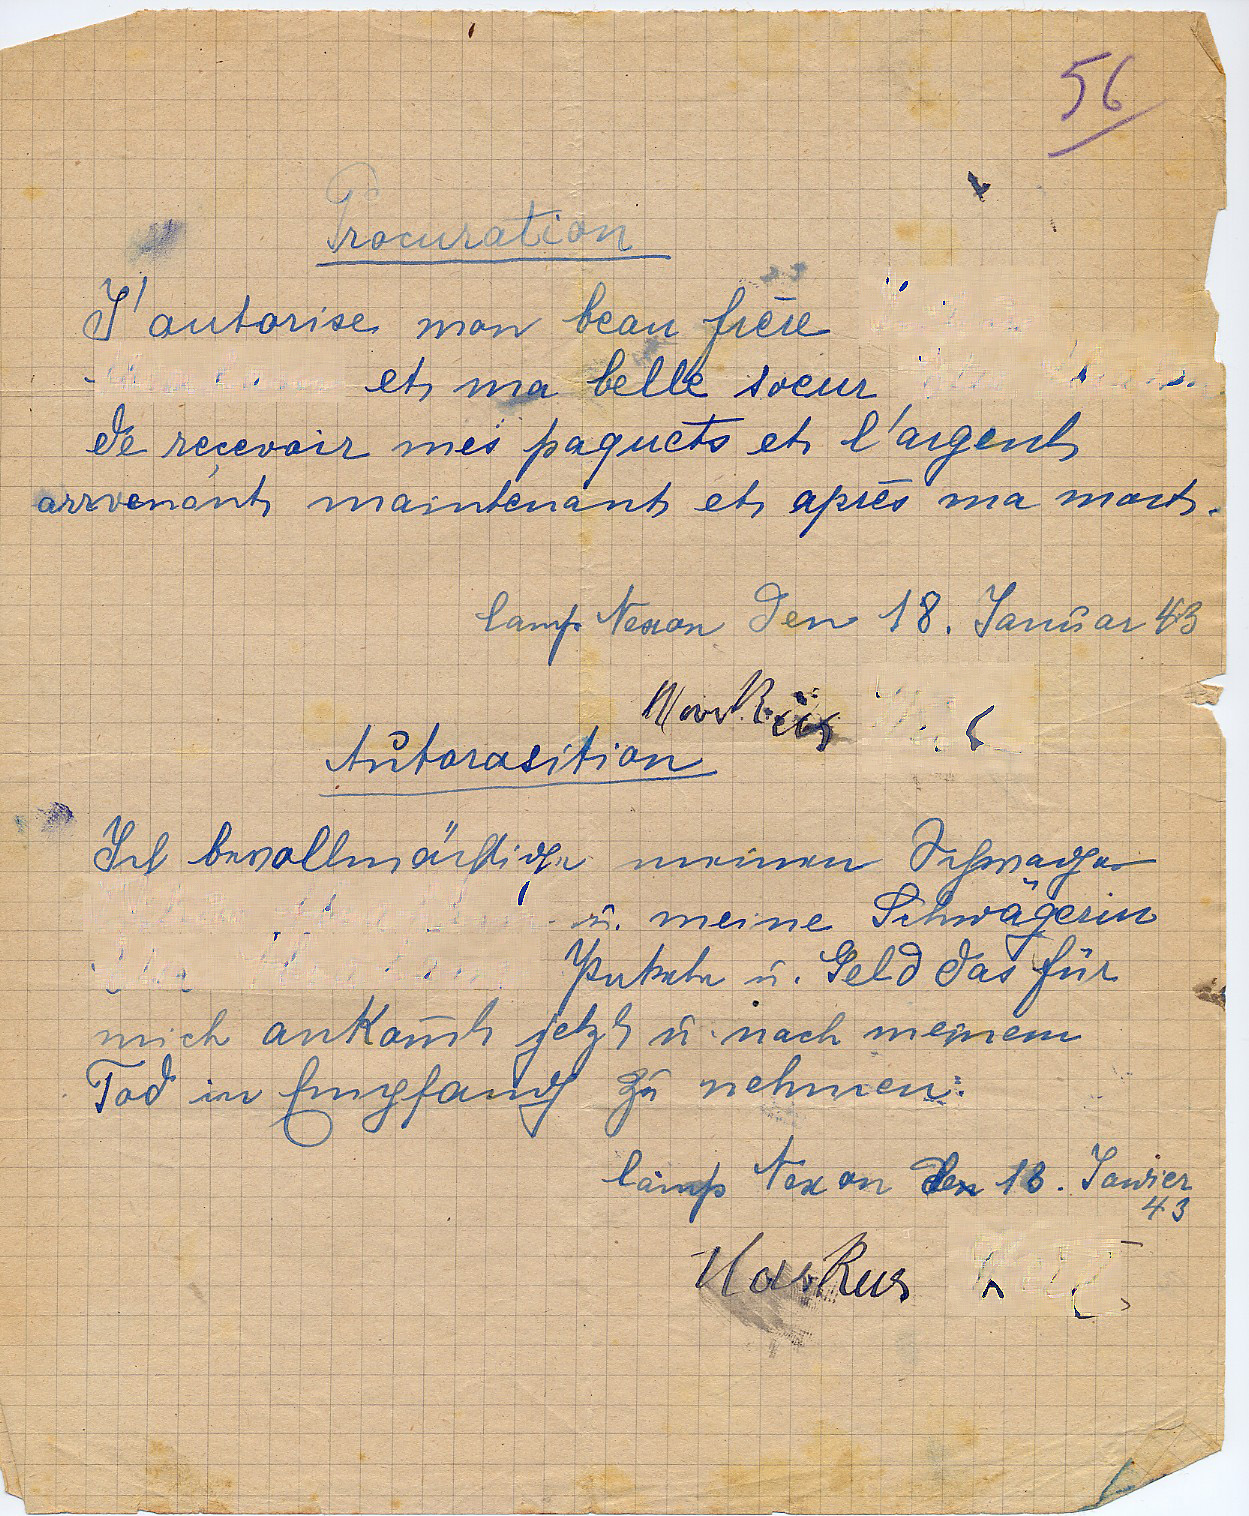 56
Procuration
J'autorise mon beau frère
et ma belle soeur
de recevoir mes paquets et l'argent
arrvenant maintenant et après ma mort.
Camp Nexon den 18. Januar 43
Autorasition
Ich bevollmächtige meinen Schwager
u. meine Schwägerin
Pakete u. Geld das für
mich ankom̄t jetzt u. nach meinem
Tod in Empfang zu nehmen.
Camp Nexon den 18. Janvier
43
Markus